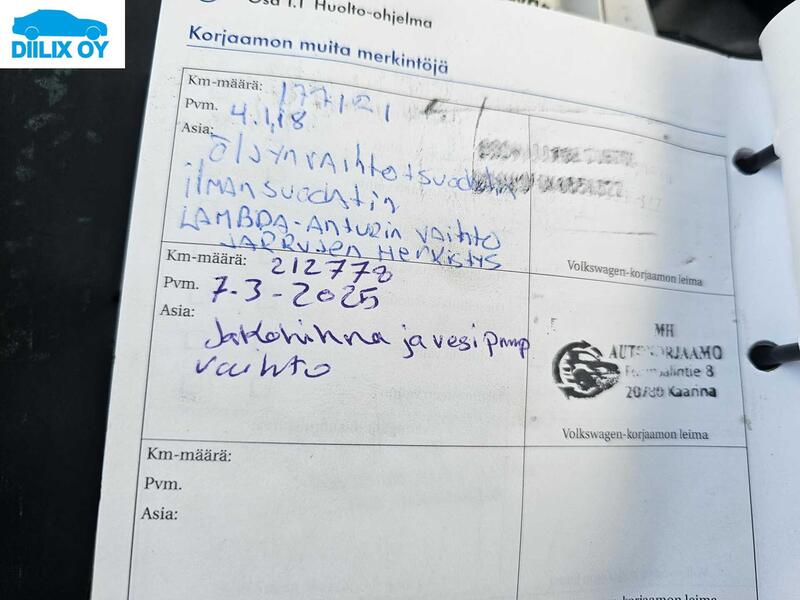 DIILIX OY
Osa 1.1 Huolto-ohjelma
Korjaamon muita merkintöjä
Km-määrä: 177121
Pvm. 4.1.18
Asia:
öljynvaihto+suodatin
ilmansuodatin
LAMBDA-Anturin vaihto
JARRUJEN HERKISTYS
Volkswagen-korjaamon leima
Km-määrä: 212778
Pvm. 7.3-2025
Asia:
Jakohihna ja vesipump
vaihto
MH
AUTOKORJAAMO
8
20780 Kaarina
Volkswagen-korjaamon leima
Km-määrä:
Pvm.
Asia: